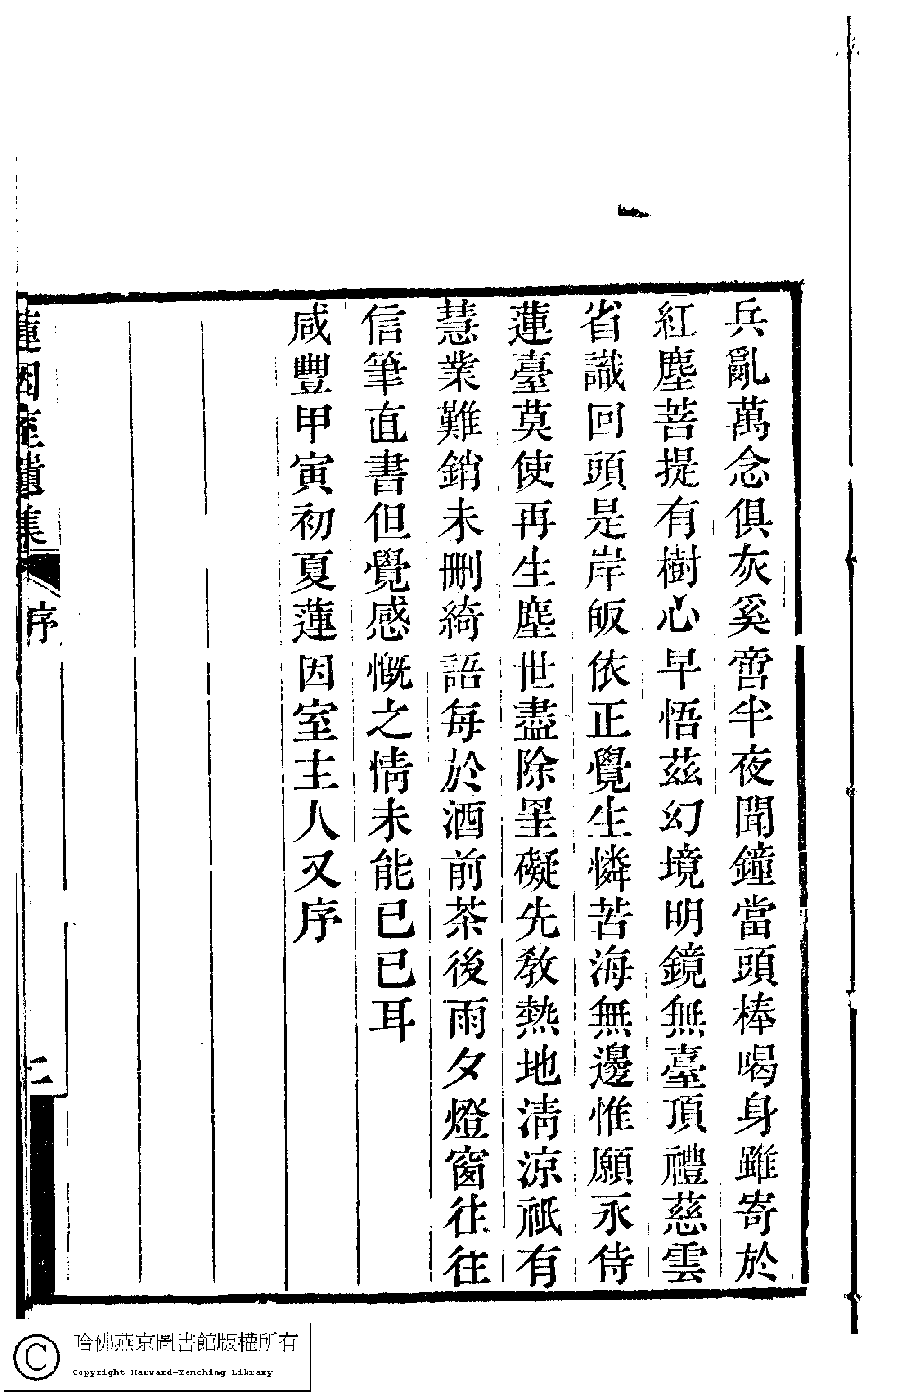 兵亂萬念俱灰奚啻半夜聞鐘當頭棒喝身雖寄於
紅塵菩提有樹心早悟茲幻境明鏡無臺頂禮慈雲
省識回頭是岸皈依正覺生憐苦海無邊惟願永侍
蓮臺莫使再生塵世盡除罣礙先教熱地清涼祇有
慧業難銷未刪綺語每於酒前茶後雨夕燈窗往往
信筆直書但覺感慨之情未能已已耳
咸豐甲寅初夏蓮因室主人又序
蓮因室遺集
序
二
哈佛燕京圖書館版權所有
Copyright Harvard-Yenching Library